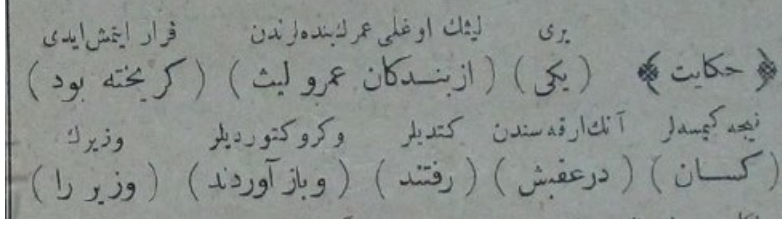 بری لیثك اوغلی عمرك بنده لرندن فرار ایتمش ایدی
﴿ حکایت ﴾ ( یکی ) ( از بندکان عمرو لیث ) ( کریخته بود )
نیجه کیمسه لر آنك ارقه سندن کتدیلر وکرو کتوردیلر وزیرك
( کسان ) ( درعقبش ) ( رفتند ) ( وباز آوردند ) ( وزیر را )